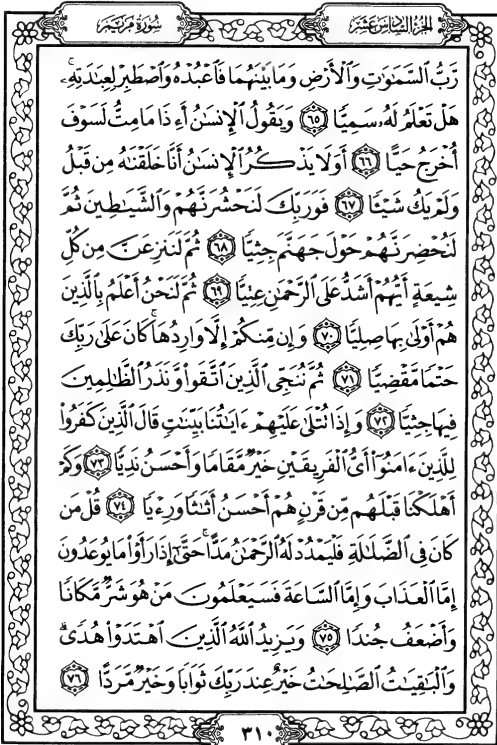 سُورَةُ مَرْيَمَ
الجُزْءُ السَّادِسَ عَشَرَ
رَّبُّ ٱلسَّمَٰوَٰتِ وَٱلْأَرْضِ وَمَا بَيْنَهُمَا فَٱعْبُدْهُ وَٱصْطَبِرْ لِعِبَٰدَتِهِۦۚ
هَلْ تَعْلَمُ لَهُۥ سَمِيًّا ٦٥ وَيَقُولُ ٱلْإِنسَٰنُ أَءِذَا مَا مِتُّ لَسَوْفَ
أُخْرَجُ حَيًّا ٦٦ أَوَلَا يَذْكُرُ ٱلْإِنسَٰنُ أَنَّا خَلَقْنَٰهُ مِن قَبْلُ
وَلَمْ يَكُ شَيْـًٔا ٦٧ فَوَرَبِّكَ لَنَحْشُرَنَّهُمْ وَٱلشَّيَٰطِينَ ثُمَّ
لَنُحْضِرَنَّهُمْ حَوْلَ جَهَنَّمَ جِثِيًّا ٦٨ ثُمَّ لَنَنزِعَنَّ مِن كُلِّ
شِيعَةٍ أَيُّهُمْ أَشَدُّ عَلَى ٱلرَّحْمَٰنِ عِتِيًّا ٦٩ ثُمَّ لَنَحْنُ أَعْلَمُ بِٱلَّذِينَ
هُمْ أَوْلَىٰ بِهَا صِلِيًّا ٧٠ وَإِن مِّنكُمْ إِلَّا وَارِدُهَاۚ كَانَ عَلَىٰ رَبِّكَ
حَتْمًا مَّقْضِيًّا ٧١ ثُمَّ نُنَجِّى ٱلَّذِينَ ٱتَّقَوا۟ وَّنَذَرُ ٱلظَّٰلِمِينَ
فِيهَا جِثِيًّا ٧٢ وَإِذَا تُتْلَىٰ عَلَيْهِمْ ءَايَٰتُنَا بَيِّنَٰتٍ قَالَ ٱلَّذِينَ كَفَرُوا۟
لِلَّذِينَ ءَامَنُوٓا۟ أَىُّ ٱلْفَرِيقَيْنِ خَيْرٌ مَّقَامًا وَأَحْسَنُ نَدِيًّا ٧٣ وَكَمْ
أَهْلَكْنَا قَبْلَهُم مِّن قَرْنٍ هُمْ أَحْسَنُ أَثَٰثًا وَرِءْيًا ٧٤ قُلْ مَن
كَانَ فِى ٱلضَّلَٰلَةِ فَلْيَمْدُدْ لَهُ ٱلرَّحْمَٰنُ مَدًّاۚ حَتَّىٰٓ إِذَا رَأَوْا۟ مَا يُوعَدُونَ
إِمَّا ٱلْعَذَابَ وَإِمَّا ٱلسَّاعَةَ فَسَيَعْلَمُونَ مَنْ هُوَ شَرٌّ مَّكَانًا
وَأَضْعَفُ جُندًا ٧٥ وَيَزِيدُ ٱللَّهُ ٱلَّذِينَ ٱهْتَدَوْا۟ هُدًىۗ
وَٱلْبَٰقِيَٰتُ ٱلصَّٰلِحَٰتُ خَيْرٌ عِندَ رَبِّكَ ثَوَابًا وَخَيْرٌ مَّرَدًّا ٧٦
٣١٠